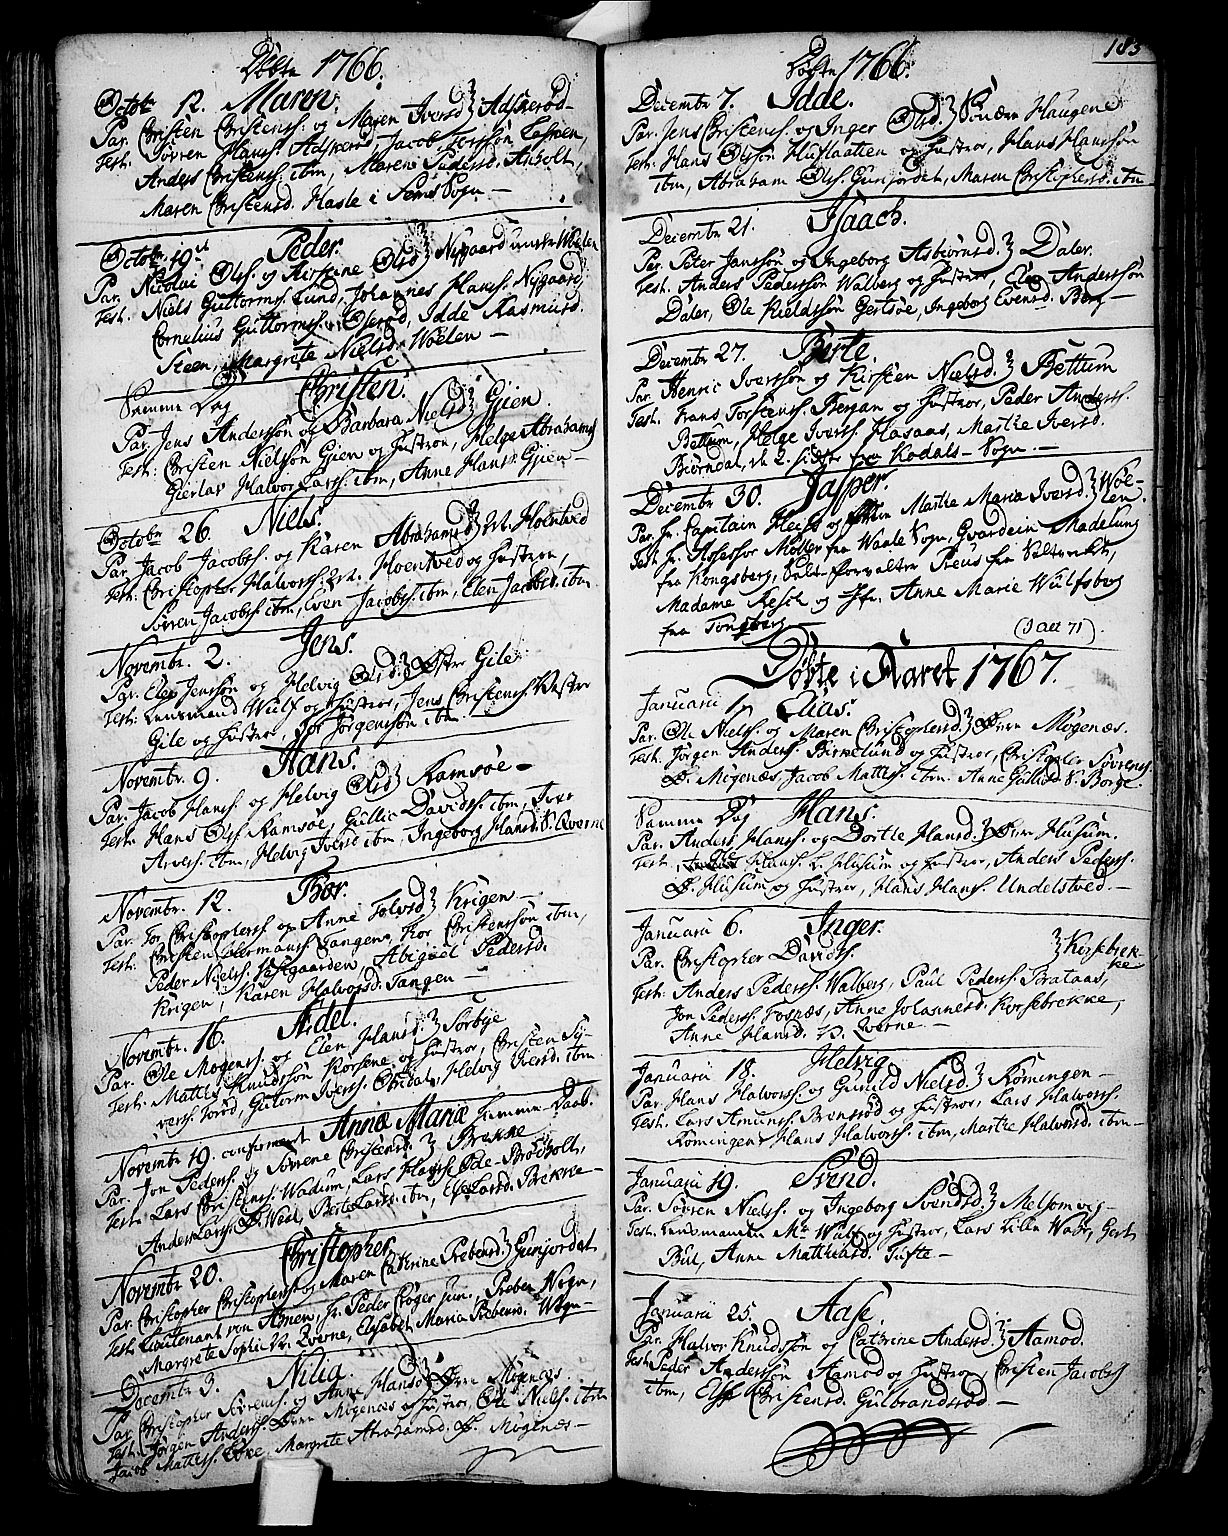 Döbte 1766.
Octobr 12. Maren.
Par. Christen Christens. og Maren Iversd. Adskeröd
Test: Sövren Hans. Adskeröd, Jacob
Anders Christens. ibm, Maren Anholt,
Maren Christensd. Hasle i Sems Sogn
Octobr 19 Peder.
Par. Nicolai Ols. og Kirstene Olsd. Nÿgaard under Woelen
Test: Niels Guttorms. Lund, Johannes Hans. Nÿgaard,
Cornelius Guttorms. Oseröd, Idde Rasmusd.
Steen, Margrete Nielsd. Woelen
Samme Dag Christen.
Par. Jens Anderssön og Barbara Nielsd. Gjien.
Test: Christen Nielssön Gjien og Hustroe, Helge Abrahams.
Gierlas Halvor Lars. ibm, Anne Hans. Gjien
Octobr 26. Niels.
Par. Jacob Jacobs. og Karen Abrahamsd. Hoentved
Test: Christopher Halvors. Hoentved og Hustroe,
Sövren Jacobs. ibm, Even Jacobs. ibm, Elen Jacobsd. ibm
Novembr. 2. Jens.
Par. Elex Jenssön og Helvig Olsd. Östre Gile
Test: Lensmand Wulf og Hustroe, Jens Christens. Vestre
Gile og Hustroe, Tor Jörgenssön ibm.
Novembr. 9. Hans.
Par. Jacob Hans. og Helvig Olsd. Ramsöe
Test: Hans Ols. Ramsöe, Gullic Davids. ibm, Iver
Arvers. ibm, Helvig Iversd. ibm, Ingeborg Hansd. S. Qverne
Novembr. 12. Thor.
Par. Tor Christophers. og Anne Krigen
Test: Christen Hermans. Tangen, Thor Christenssön ibm,
Peder Niels. Westgaarden, Abigael Pedersd.
Krigen, Karen Halvorsd. Tangen
Novembr. 16. Adel.
Par. Ole Mogens. og Elen Hansd. Sörbÿe
Test: Mattis Knudssön Korsene og Hustroe, Christen
Guttorm Ivers. Helvig Iversd. ibm
Novembr 19. confirmeret Anne Maria hiemme-Daab.
Par. Jon Peders. og Sövrene Christensd. Brekke
Test: Lars Christens. Wadum, Lars Hans. Ode-Brödholt,
Anders Lars. Berte Larsd. ibm, Else Larsd. Brekke
Novembr 20. Christopher
Par. Christopher Christophers. og Maren Catrine Prebensd. Gunjordet
Test: Lieutenant von Amen, Hr. Peder Cröger jun., Preben Wegn,
Margrete Sophie Qverne, Elisabet Maria Prebensd. Wegn
Decembr 3. Nilia.
Par. Christopher Sövrens. og Anne Hansd. Mögenæs
Test: Jörgen Anders. Mögenæs og Hustroe, Ole Niels. ibm
Jacob Mattis. Eske, Margrete Abrahamsd. Mögenæs
183
Döbte 1766.
Decembr 7. Idde.
Par. Jens Christens. og Inger Olsd. Söndre Haugene
Test: Hans Olssön Huslaatten og Hustroe, Hans Hanssön
ibm, Abraham Ols. Gunjordet, Maren Christophersd. ibm
Decembr 21. Isaach.
Par. Peter Janssön og Ingeborg Asbiörnsd. Daler.
Test: Anders Pederssön Walberg og Hustroe, Elex Anderssön
Daler, Ole Kieldssön Gertsöe, Ingeborg Evensd. Berg
Decembr 27. Birte.
Par. Henric Iverssön og Kirsten Nielsd. Bettum
Test: Frans Torstens. Bergan og Hustroe, Peder Anders.
Bettum, Helge Ivers. Hasaas, Marthe Iversd.
Biörndal, de 2. sidste fra Kodals-Sogn.
Decembr 30. Jasper.
Par. Hr. Capitain Hess og Marthe Maria Iversd. Wöelen.
Test: Hr. Assessor Möller fra Waale Sogn, Gvardein Madelung
fra Kongsberg, Salt-forvalter Preus fra Saltverket,
Madame Resch og Jfr. Anne Marie Wülfsberg
fra Tönsberg
(J alt 71)
Döbte i Aaret 1767.
Januarii 1. Elias.
Par. Ole Niels. og Maren Christophersd. Mögenæs.
Test: Jörgen Anders. Birkelund og Hustroe, Christopher Sövrens.
Mögenæs, Jacob Mattis. ibm. Anne S. Borge.
Samme Dag Hans.
Par. Anders Hans. og Dorthe Hansd. Husum.
Test: Hans. Husum og Hustroe, Anders Peders.
Husum og Hustroe, Hans Hans. Undelstved.
Januarii 6. Inger.
Par. Christopher Davids. Korsebrekke
Test: Anders Peders. Walberg, Paul Peders. Brataas,
Jon Peders. Fosnæs, Anne Johannesd. Korsebrekke,
Anne Hansd. Qverne.
Januarii 18. Helvig
Par. Hans Halvors. og Gunild Nielsd. Römingen
Test: Lars Amuns. Brenseröd og Hustroe, Lars Halvors.
Römingen, Hans Halvors. ibm, Marthe Halvorsd. ibm
Januarii 19. Svend.
Par. Sövren Niels. og Ingeborg Svendsd. Melsomvig
Test: Lensmanden Mr. Wulf og Hustroe, Lars Lilla Waar, Gert
Buil, Anne Mathiasd. Tufte
Januarii 25. Aase.
Par. Halvor Knudssön og Catrine Andersd. Aamod.
Test: Peder Anderssön Aamod og Hustroe, Christen Jacobs.
ibm, Else Christensd. Gulbrandsröd